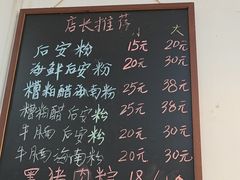 店长推荐
小 大
后安粉 15元 20元
海鲜后安粉 20元 30元
糟粕醋海南粉 25元 38元
糟粕醋后安粉 25元 38元
牛腩后安粉 20元 30元
牛腩海南粉 20元 30元
黑猪肉粽 18/